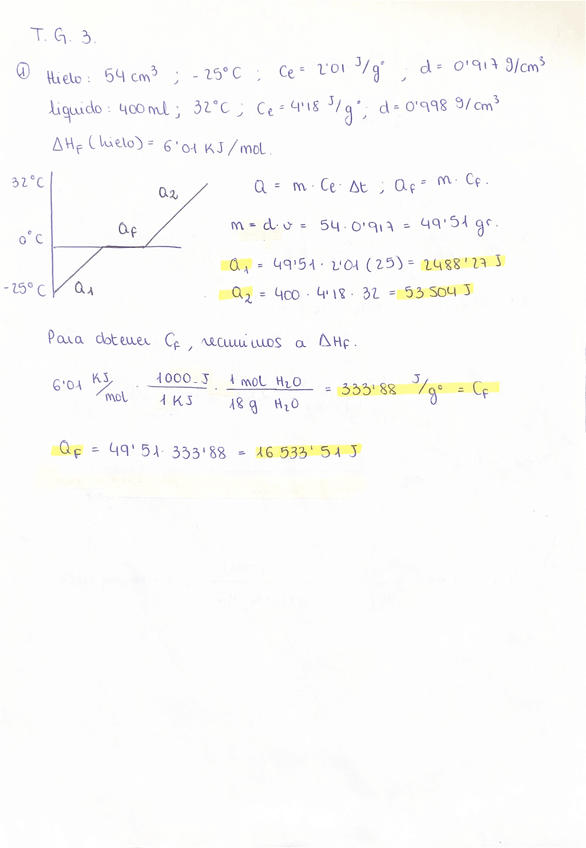 T. G. 3.
① Hielo: 54 cm³ ; -25°C ; Ce = 2'01 J/g° , d = 0'917 g/cm³
líquido: 400 ml ; 32°C ; Ce = 4'18 J/g° ; d = 0'998 g/cm³
ΔHF (hielo) = 6'01 KJ/mol.
32°C
Q2
Q = m · Ce · Δt ; QF = m · CF.
0°C
QF
m = d·v = 54 · 0'917 = 49'51 gr.
-25°C
Q1
Q1 = 49'51 · 2'01 (25) = 2488'27 J
Q2 = 400 · 4'18 · 32 = 53 504 J
Para obtener CF, recurrimos a ΔHF.
6'01 KJ/mol · 1000 J / 1 KJ · 1 mol H2O / 18 g H2O = 333'88 J/g° = CF
QF = 49'51 · 333'88 = 16 533'51 J